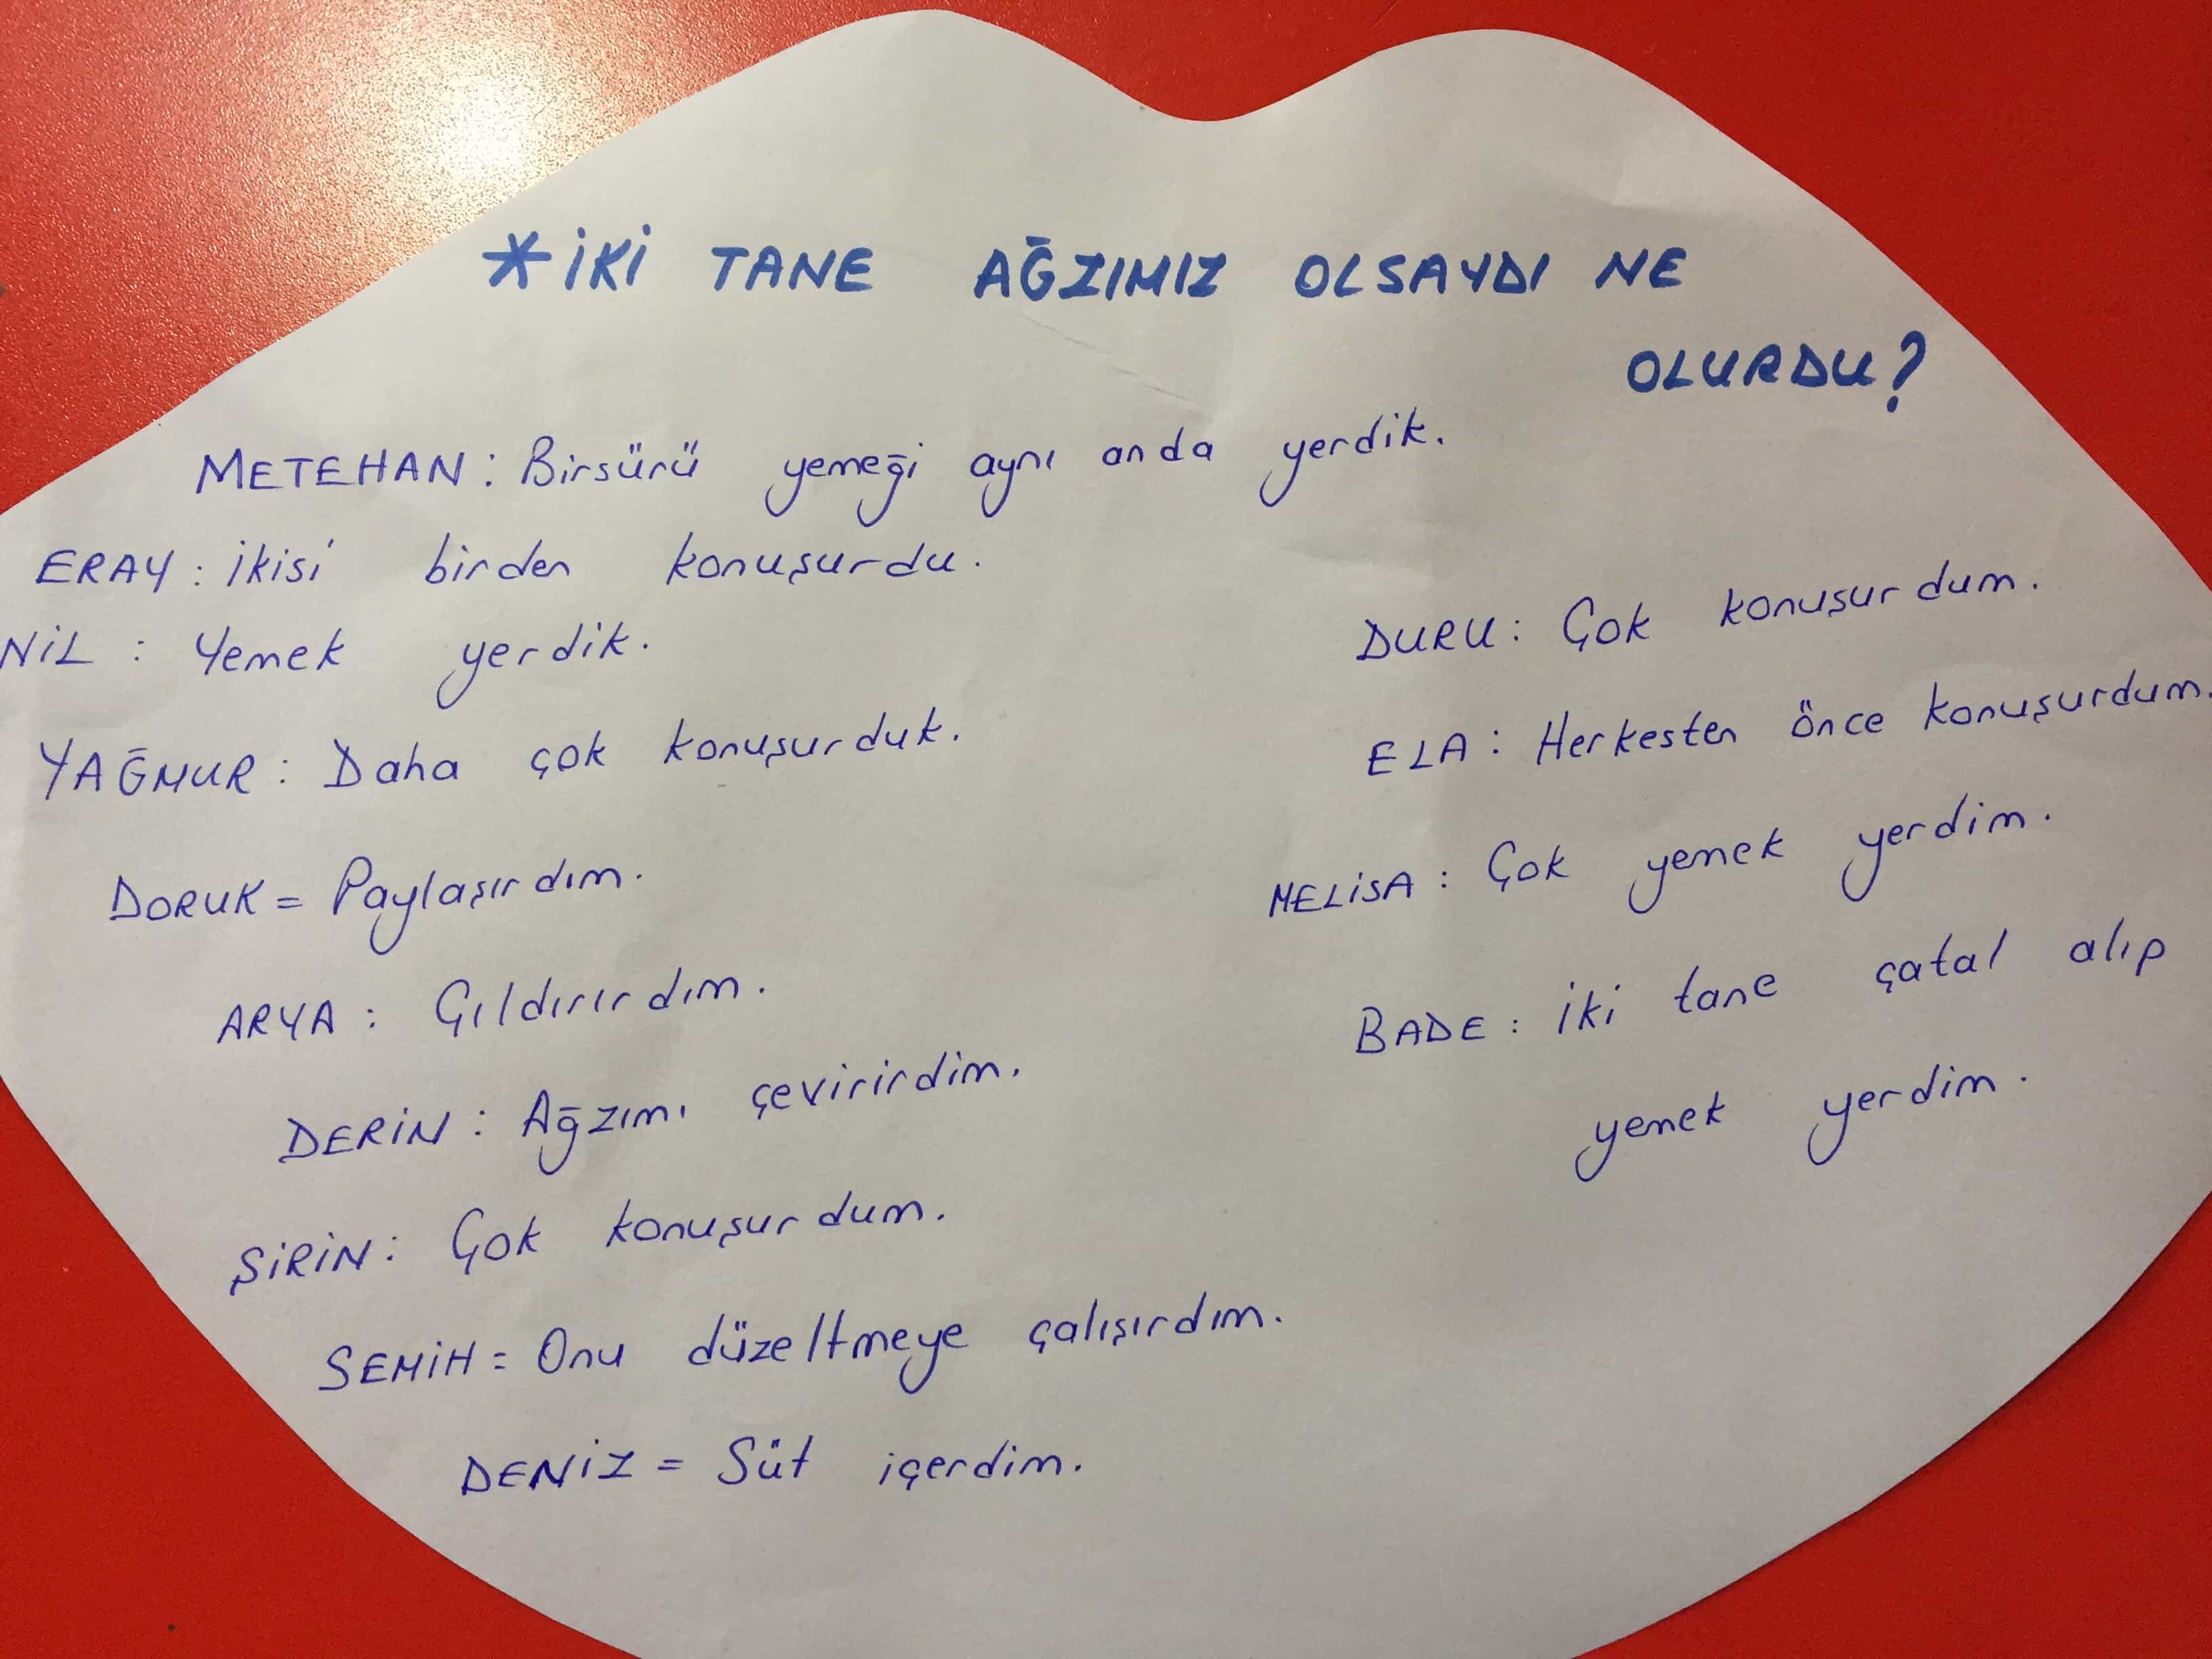 *İKİ TANE AĞZIMIZ OLSAYDI NE
OLURDU?
METEHAN: Birsürü yemeği aynı anda yerdik.
ERAY: İkisi birden konuşurdu.
NİL: Yemek yerdik.
YAĞMUR: Daha çok konuşurduk.
DORUK= Paylaşırdım.
ARYA: Çıldırırdım.
DERİN: Ağzımı çevirirdim.
ŞİRİN: Çok konuşurdum.
SEMİH= Onu düzeltmeye çalışırdım.
DENİZ= Süt içerdim.
DURU: Çok konuşurdum.
ELA: Herkesten önce konuşurdum.
MELİSA: Çok yemek yerdim.
BADE: İki tane çatal alıp
yemek yerdim.